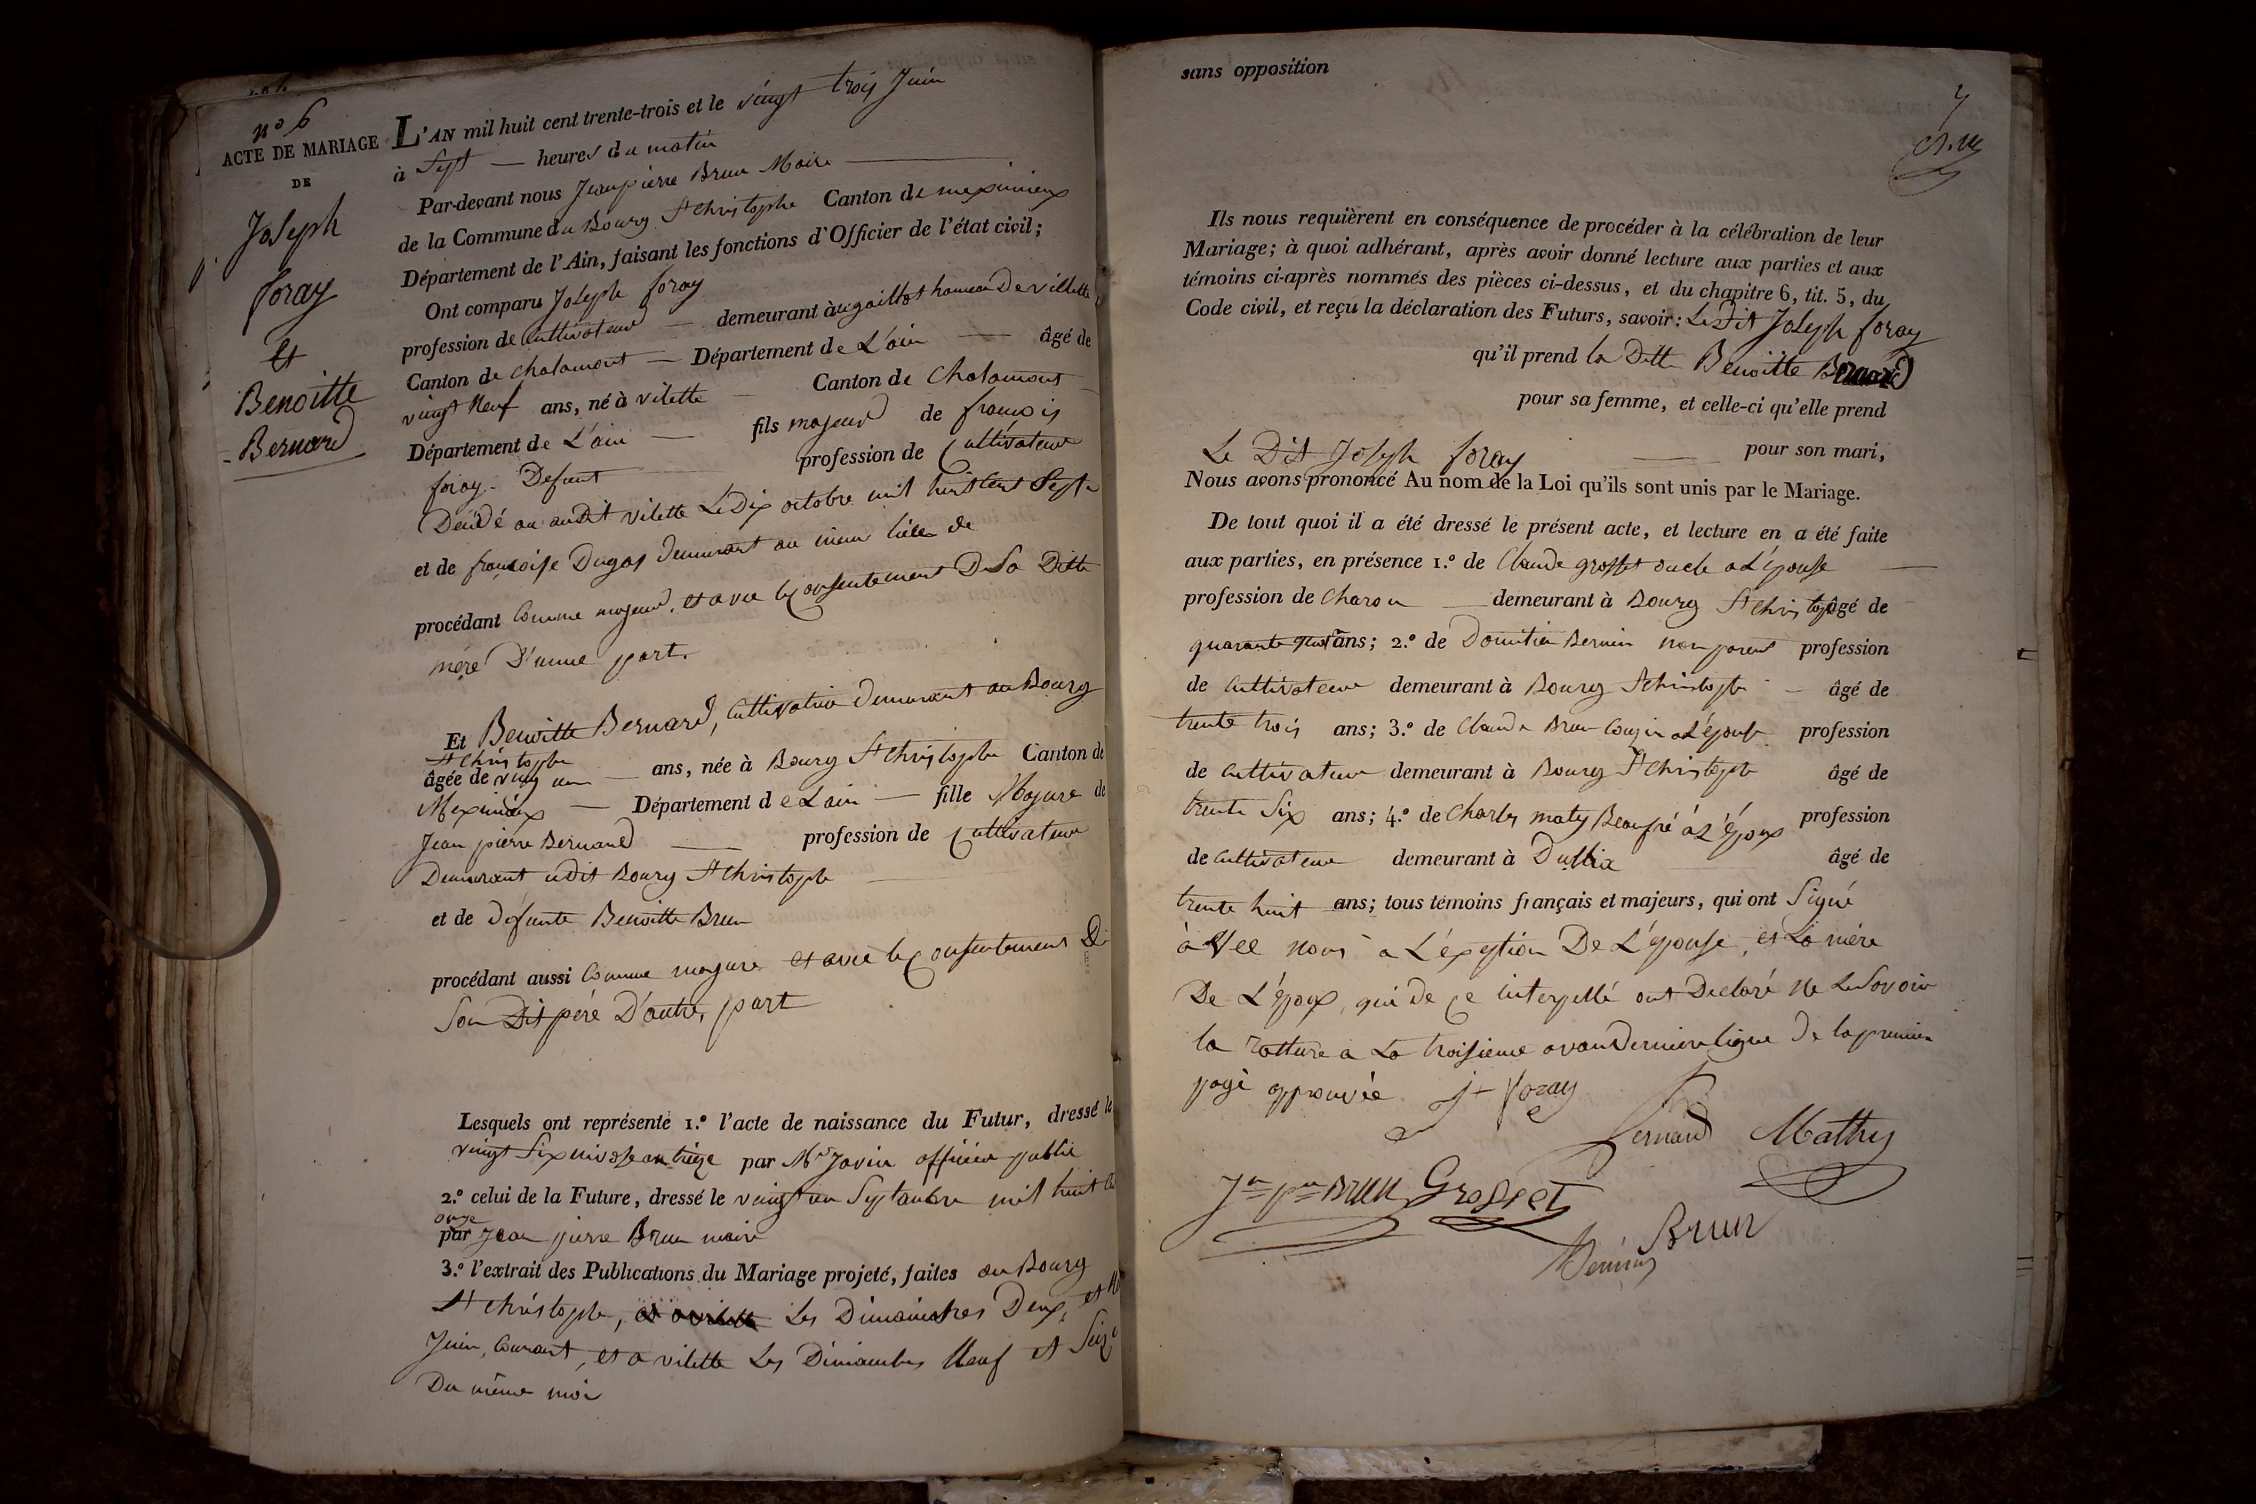 n° 6
ACTE DE MARIAGE
DE
Joseph
foray
et
Benoitte
Bernard
L'AN mil huit cent trente-trois et le vingt trois Juin
à Sept heures du matin
Par-devant nous Jean pierre Brun Maire
de la Commune du Bourg St Christophe Canton de meximieux
Département de l'Ain, faisant les fonctions d'Officier de l'état civil;
Ont comparu Joseph foray
profession de Cultivateur demeurant à hameau De villette
Canton de chalamont Département de L'ain âgé de
vingt Neuf ans, né à vilette Canton de Chalamont
Département de L'ain fils majeur de francois
foray Defunt profession de Cultivateur
Décédé au audit vilette Le Dix octobre mil huit cent Sept
et de françoise Dugas demeurant au même lieu de
procédant Comme majeur, et avec le Consentement De La Ditte
mère D'unne part.
Et Benoitte Bernard, Cultivatrice demeurant au Bourg
St Christophe
âgée de vingt un ans, née à Bourg St Christophe Canton de
Meximieux Département de L'ain fille Majeure de
Jean pierre Bernard profession de Cultivateur
Demeurant udit Bourg St Christophe
et de défunte Benoitte Brun
procédant aussi Comme majeure et avec le Consentement De
Son Dit père D'autre part
Lesquels ont représenté 1.° l'acte de naissance du Futur, dressé le
vingt Six nivose an treize par Mr Javin officier public
2.° celui de la Future, dressé le vingt un Septembre mil huit
onze
par Jean pierre Brun maire
3.° l'extrait des Publications du Mariage projeté, faites au Bourg
St Christophe, et a vilette Les Dimanches Deux, et
Juin, Courant, et a vilette Les Dimanches Neuf et Seize
Du même mois
sans opposition
7
Ils nous requièrent en conséquence de procéder à la célébration de leur
Mariage; à quoi adhérant, après avoir donné lecture aux parties et aux
témoins ci-après nommés des pièces ci-dessus, et du chapitre 6, tit. 5, du
Code civil, et reçu la déclaration des Futurs, savoir: Le Dit Joseph foray
qu'il prend la Ditte Benoitte Bernard
pour sa femme, et celle-ci qu'elle prend
Le Dit Joseph foray pour son mari,
Nous avons prononcé Au nom de la Loi qu'ils sont unis par le Mariage.
De tout quoi il a été dressé le présent acte, et lecture en a été faite
aux parties, en présence 1.° de Claude grosset oncle a L'épouse
profession de Charon demeurant à Bourg St Christophe âgé de
quarante ans; 2.° de Domitien Bernin non parent profession
de Cultivateur demeurant à Bourg St christophe âgé de
trente trois ans; 3.° de Claude Brun Cousin a L'épouse profession
de Cultivateur demeurant à Bourg St Christophe âgé de
trente Six ans; 4.° de Charles maty Beaufré à L'époux profession
de Cultivateur demeurant à âgé de
trente huit ans; tous témoins français et majeurs, qui ont Signé
àvec nous a L'éxeption De L'épouse, et La mére
De L'époux, qui de ce interpellé ont Declaré Ne Le Savoir
la ratture a La troisieme avan derniere ligne de la premiere
page approuvée jh foray
Bernard Mathy
Jn pre Brun Grosset
Brun
Bernin